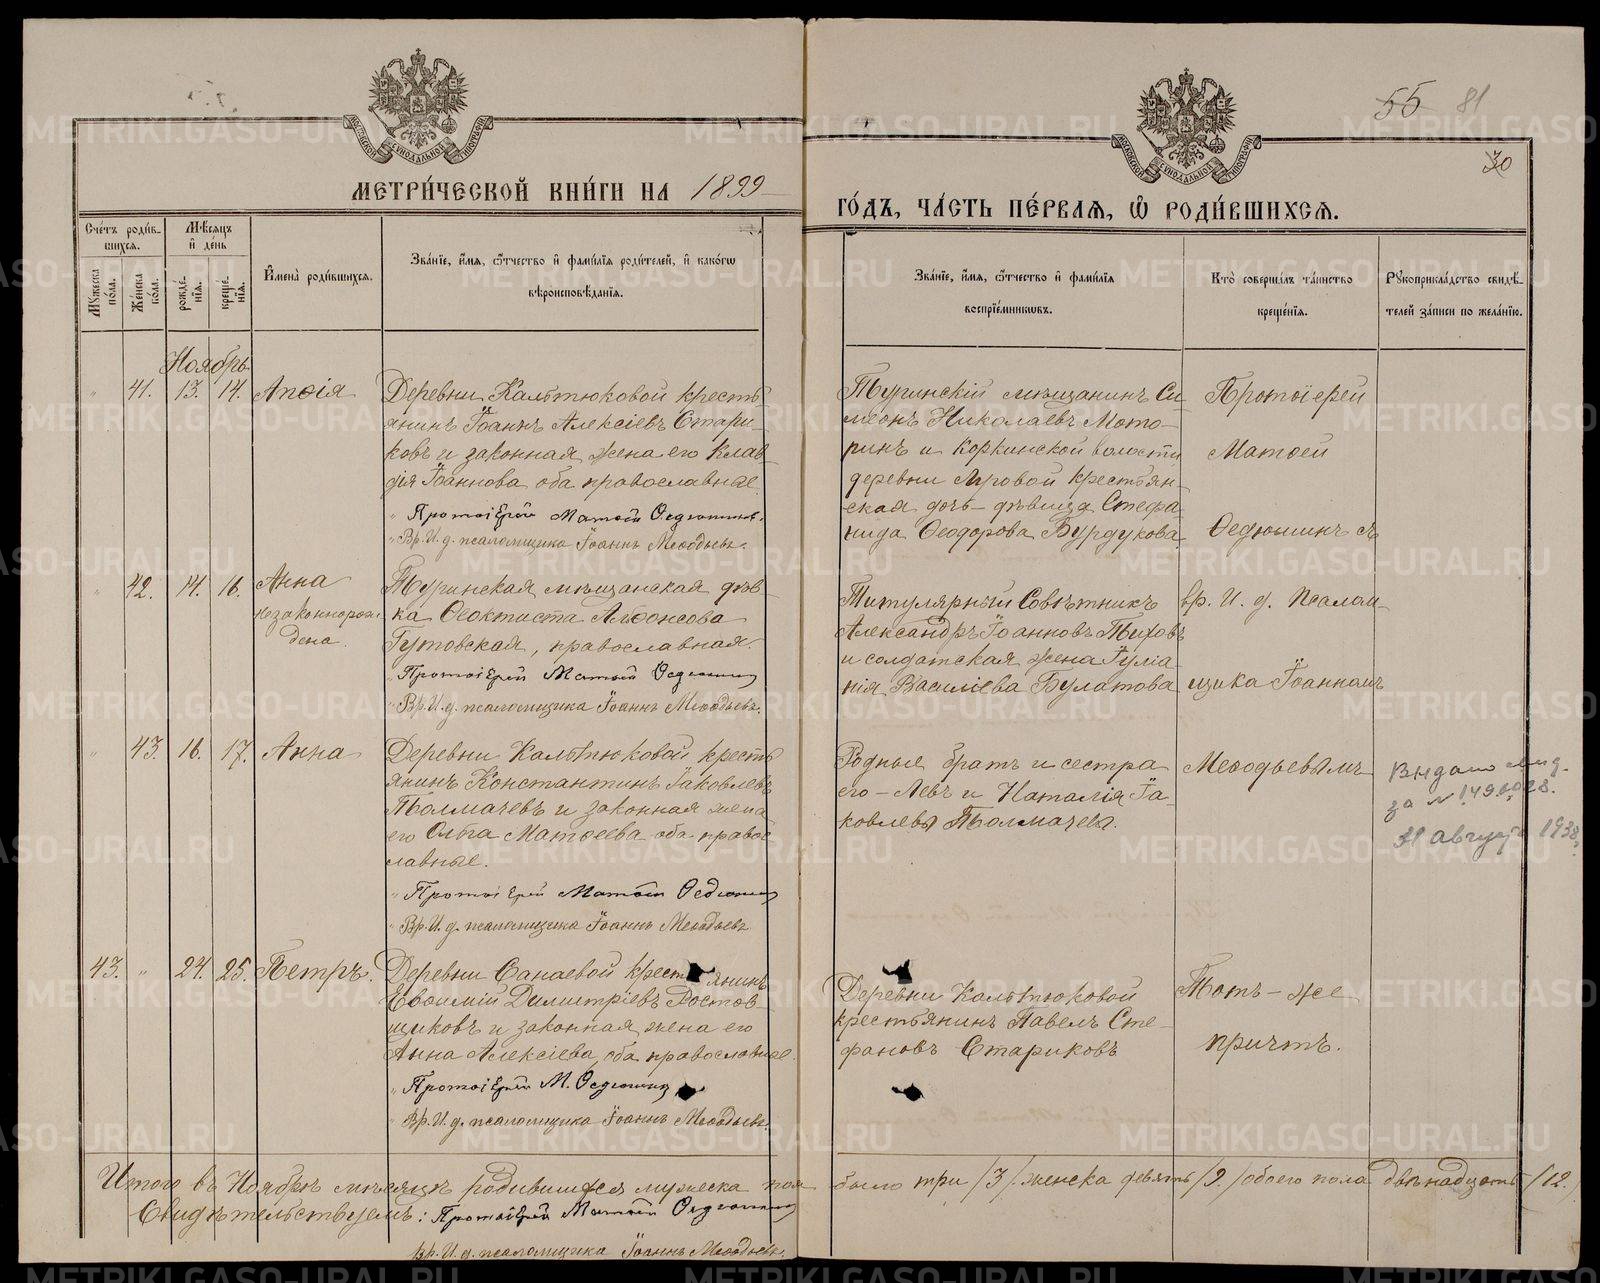 55 81
30
МЕТРИ́ЧЕСКОЙ КНИ́ГИ НА 1899
ГО́ДЪ, ЧА́СТЬ ПЕ́РВАЯ, Ѡ҆ РОДИ́ВШИХСЯ.
Сче́тъ роди́в-
шихся.
Мѣ́сяцъ
и҆ де́нь
Мꙋ́жеска по́ла.
Же́нска по́ла.
рожде́-
нїя.
креще́-
нїя.
И҆мена̀ роди́вшихся.
Зва́нїе, и҆́мя, ѻ҆́тчество и҆ фами́лїя роди́телей, и҆ како́гѡ
вѣроисповѣ́данїя.
Зва́нїе, и҆́мя, ѻ҆́тчество и҆ фами́лїя
воспрїе́мникѡвъ.
Кто̀ соверша́лъ та́инство
креще́нїя.
Рꙋкоприкла́дство свидѣ́-
телей за́писи по жела́нїю.
Ноябрь
" 41. 13. 14. Апѳія
Деревни Кальтюковой кресть-
янинъ Іоаннъ Алексіевъ Стари-
ковъ и законная жена его Клав-
дія Іоаннова оба православные.
" Протоіерей Матѳей Ѳедюшинъ.
" Вр. И. д. псаломщика Іоаннъ Меѳодьевъ.
Туринскій мѣщанинъ Си-
меонъ Николаевъ Мото-
ринъ и Коркинской волости
деревни Яровой крестьян-
ская дочь-дѣвица Стефа-
нида Ѳеодорова Бурдукова.
Протоіерей
Матѳей
Ѳедюшинъ съ
" 42. 14. 16. Анна
незаконнорож-
дена.
Туринская мѣщанская дѣв-
ка Ѳеоктиста Альфонсова
Гутовская, православная.
" Протоіерей Матѳей Ѳедюшинъ
" Вр. И. д. псаломщика Іоаннъ Меѳодьевъ.
Титулярный Совѣтникъ
Александръ Іоанновъ Тиховъ
и солдатская жена Іуліа-
нія Василіева Булатова
вр. И. д. Псалом-
щика Іоанномъ
" 43. 16. 17. Анна
Деревни Кальтюковой кресть-
янинъ Константинъ Іаковлевъ
Толмачевъ и законная жена
его Ольга Матѳеева, оба право-
славные.
" Протоіерей Матѳей Ѳедюшинъ
" Вр. И. д. псаломщика Іоаннъ Меѳодьевъ
Родные братъ и сестра
его - Левъ и Наталія Іа-
ковлевы Толмачевы.
Меѳодьевымъ
Выдано
за №
31 августа 1938.
43. " 24. 25. Петръ.
Деревни Санаевой крестьянинъ
Евѳимій Димитріевъ Ростов-
щиковъ и законная жена его
Анна Алексіева, оба православные.
" Протоіерей М. Ѳедюшинъ
" Вр. И. д. псаломщика Іоаннъ Меѳодьевъ.
Деревни Кальтюковой
крестьянинъ Павелъ Сте-
фановъ Стариковъ
Тотъ-же
причтъ.
Итого въ Ноябрѣ мѣсяцѣ родившихся мужеска пола было три /3/ женска девять /9/ обоего пола двѣнадцать /12.
Свидѣтельствуемъ: Протоіерей Матѳей Ѳедюшинъ
Вр. И. д. псаломщика Іоаннъ Меѳодьевъ.
METRIKI.GASO-URAL.RU